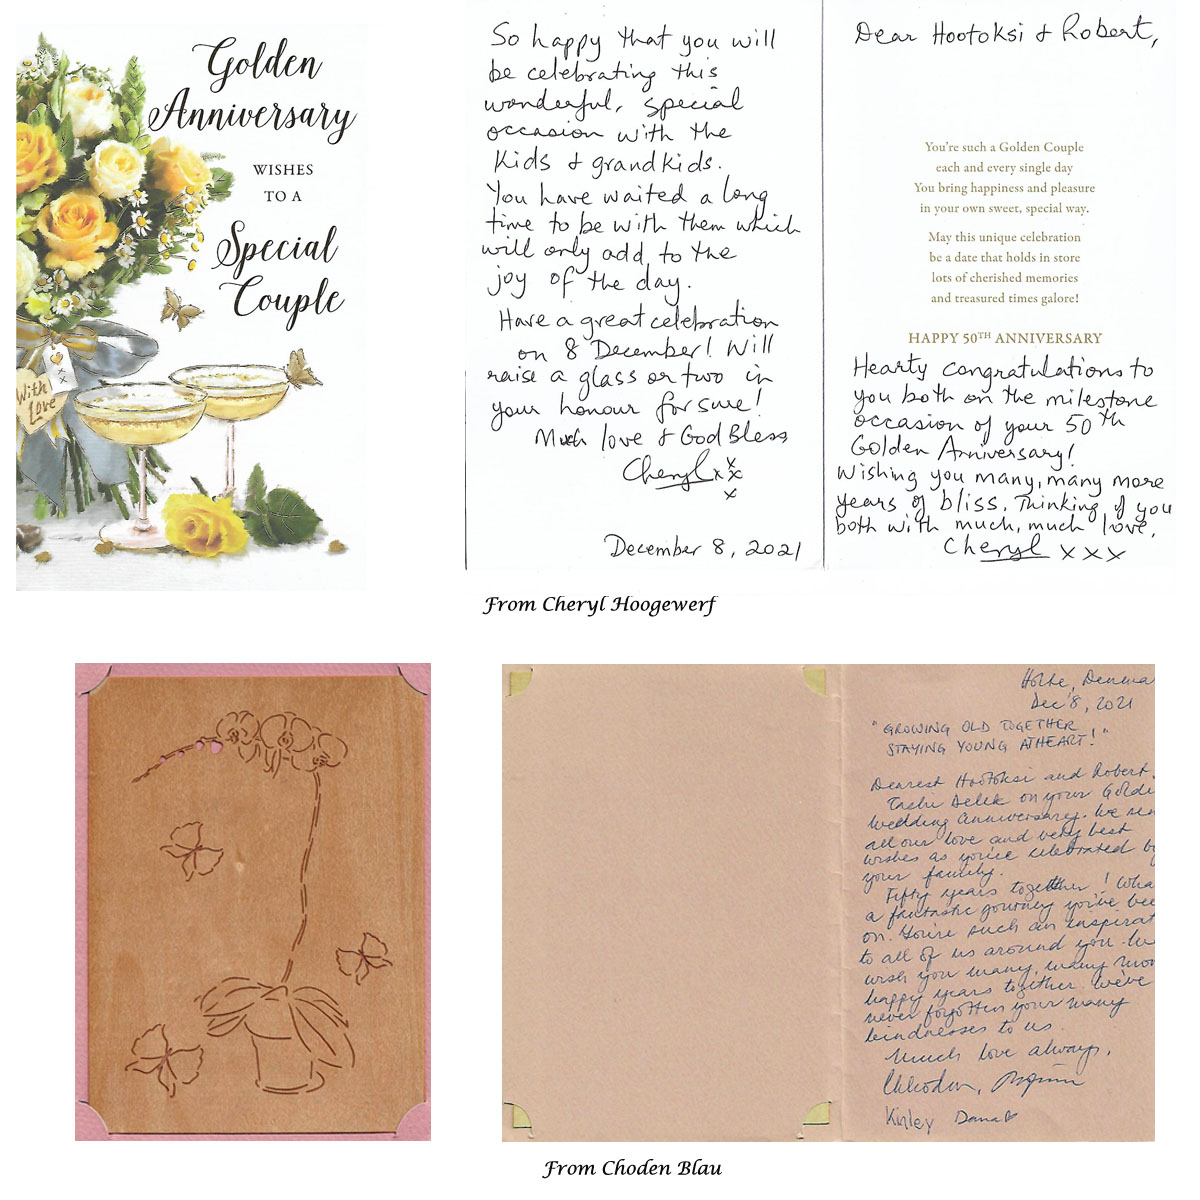 Golden
Anniversary
WISHES
TO A
Special
Couple
With
Love
x
x
So happy that you will
be celebrating this
wonderful, special
occasion with the
kids & grandkids.
You have waited a long
time to be with them which
will only add to the
joy of the day.
Have a great celebration
on 8 December! Will
raise a glass or two in
your honour for sure!
Much love & God Bless
Cheryl xxx
x
December 8, 2021
Dear Hootoksi & Robert,
You're such a Golden Couple
each and every single day
You bring happiness and pleasure
in your own sweet, special way.
May this unique celebration
be a date that holds in store
lots of cherished memories
and treasured times galore!
HAPPY 50TH ANNIVERSARY
Hearty congratulations to
you both on the milestone
occasion of your 50th
Golden Anniversary!
Wishing you many, many more
years of bliss. Thinking of you
both with much, much love,
Cheryl xxx
From Cheryl Hoogewerf
Holte, Denma
Dec 8, 2021
"GROWING OLD TOGETHER
STAYING YOUNG AT HEART!"
Dearest Hootoksi and Robert,
Tashi Delek on your Golde
wedding anniversary. We sen
all our love and very best
wishes as you're celebrated by
your family.
Fifty years together! Wha
a fantastic journey you've bee
on. You're such an inspirat
to all of us around you. We
wish you many, many mor
happy years together. We've
never forgotten your many
kindnesses to us.
Much love always,
Choden,
Kinley Dana
From Choden Blau